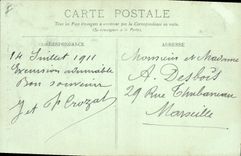 CARTE POSTALE
Tous les Pays étrangers n'acceptent pas la Correspondance au verso.
(Se renseigner à la Poste)
CORRESPONDANCE
14 Juillet 1911
Excursion admirable
Bon souvenir
J et F Crozat
ADRESSE
Monsieur et Madame
A. Desbois
29 Rue Thubaneau
Marseille